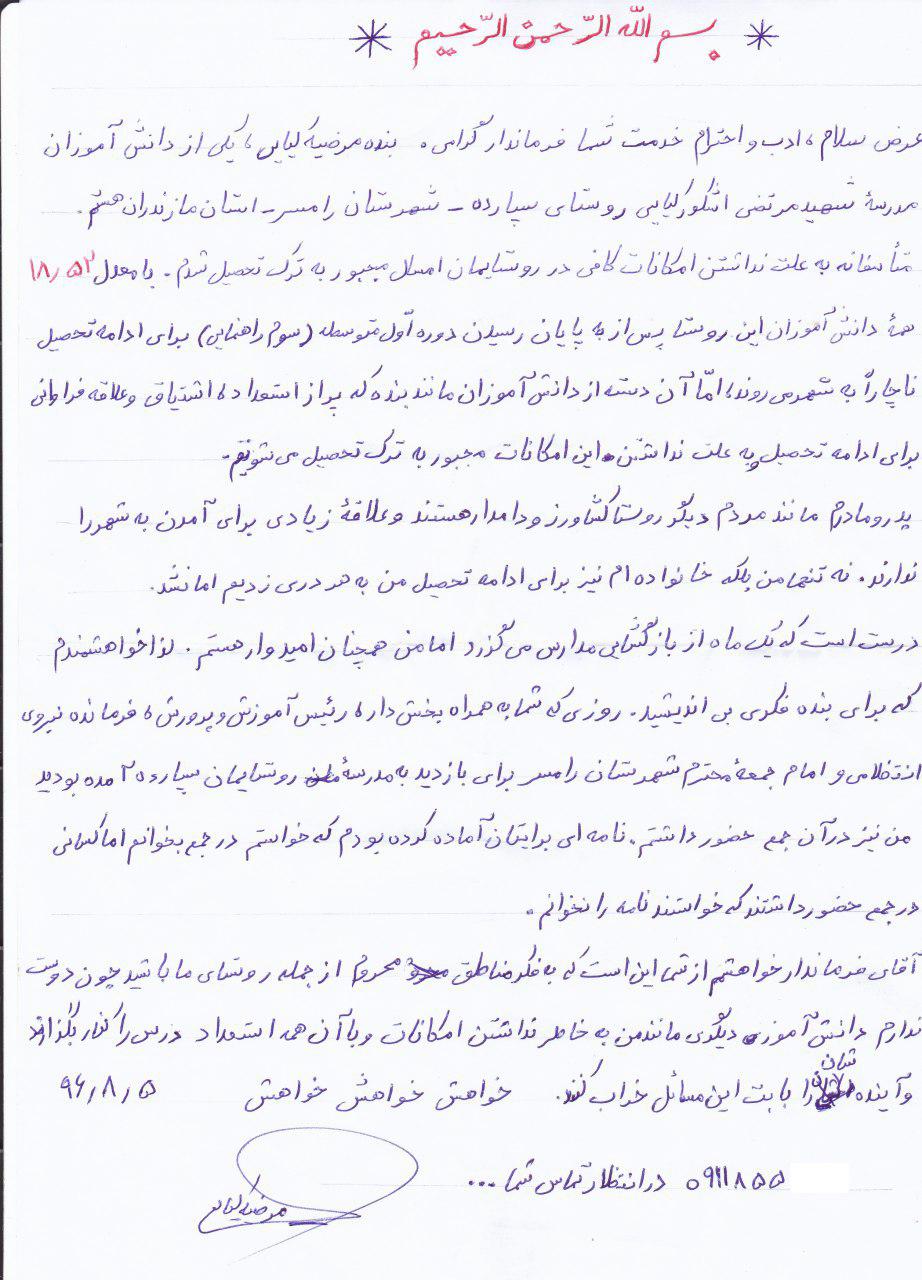 * بسم اللّه الرّحمن الرّحیم *
عرض سلام، ادب و احترام خدمت شما فرماندار گرامی. بنده مرضیه کیایی، یکی از دانش آموزان
مدرسهٔ شهید مرتضی اشکور کیایی روستای سپارده - شهرستان رامسر - استان مازندران هستم.
متأسفانه به علت نداشتن امکانات کافی در روستایمان امسال مجبور به ترک تحصیل شدم. با معدل ۱۸٫۵۲
همهٔ دانش آموزان این روستا پس از به پایان رسیدن دوره اوّل متوسطه (سوم راهنمایی) برای ادامه تحصیل
ناچاراً به شهر می روند، امّا آن دسته از دانش آموزان مانند بنده که پر از استعداد، اشتیاق و علاقه فراوانی
برای ادامه تحصیل به علت نداشتن این امکانات مجبور به ترک تحصیل می شویم.
پدر و مادرم مانند مردم دیگر روستا کشاورز و دامدار هستند و علاقهٔ زیادی برای آمدن به شهر را
ندارند. نه تنها من بلکه خانواده ام نیز برای ادامه تحصیل من به هر دری زدیم اما نشد.
درست است که یک ماه از بازگشایی مدارس می گذرد اما من همچنان امیدوار هستم. لذا خواهشمندم
که برای بنده فکری بی اندیشید. روزی که شما به همراه بخش دار، رئیس آموزش و پرورش، فرمانده نیروی
انتظامی و امام جمعهٔ محترم شهرستان رامسر برای بازدید به مدرسهٔ روستایمان سپارده آمده بودید
من نیز در آن جمع حضور داشتم. نامه ای برایتان آماده کرده بودم که خواستم در جمع بخوانم اما کسانی
در جمع حضور داشتند که خواستند نامه را نخوانم.
آقای فرماندار خواهشم از شما این است که به فکر مناطق محروم از جمله روستای ما باشید چون دوست
ندارم دانش آموزی دیگری مانند من به خاطر نداشتن امکانات و با آن همه استعداد درس را کنار بگذارند
و آینده شان را بابت این مسائل خراب کنند. خواهش خواهش خواهش ۹۶٫۸٫۵
۰۹۱۱۸۵۵ در انتظار تماس شما ...
مرضیه کیایی